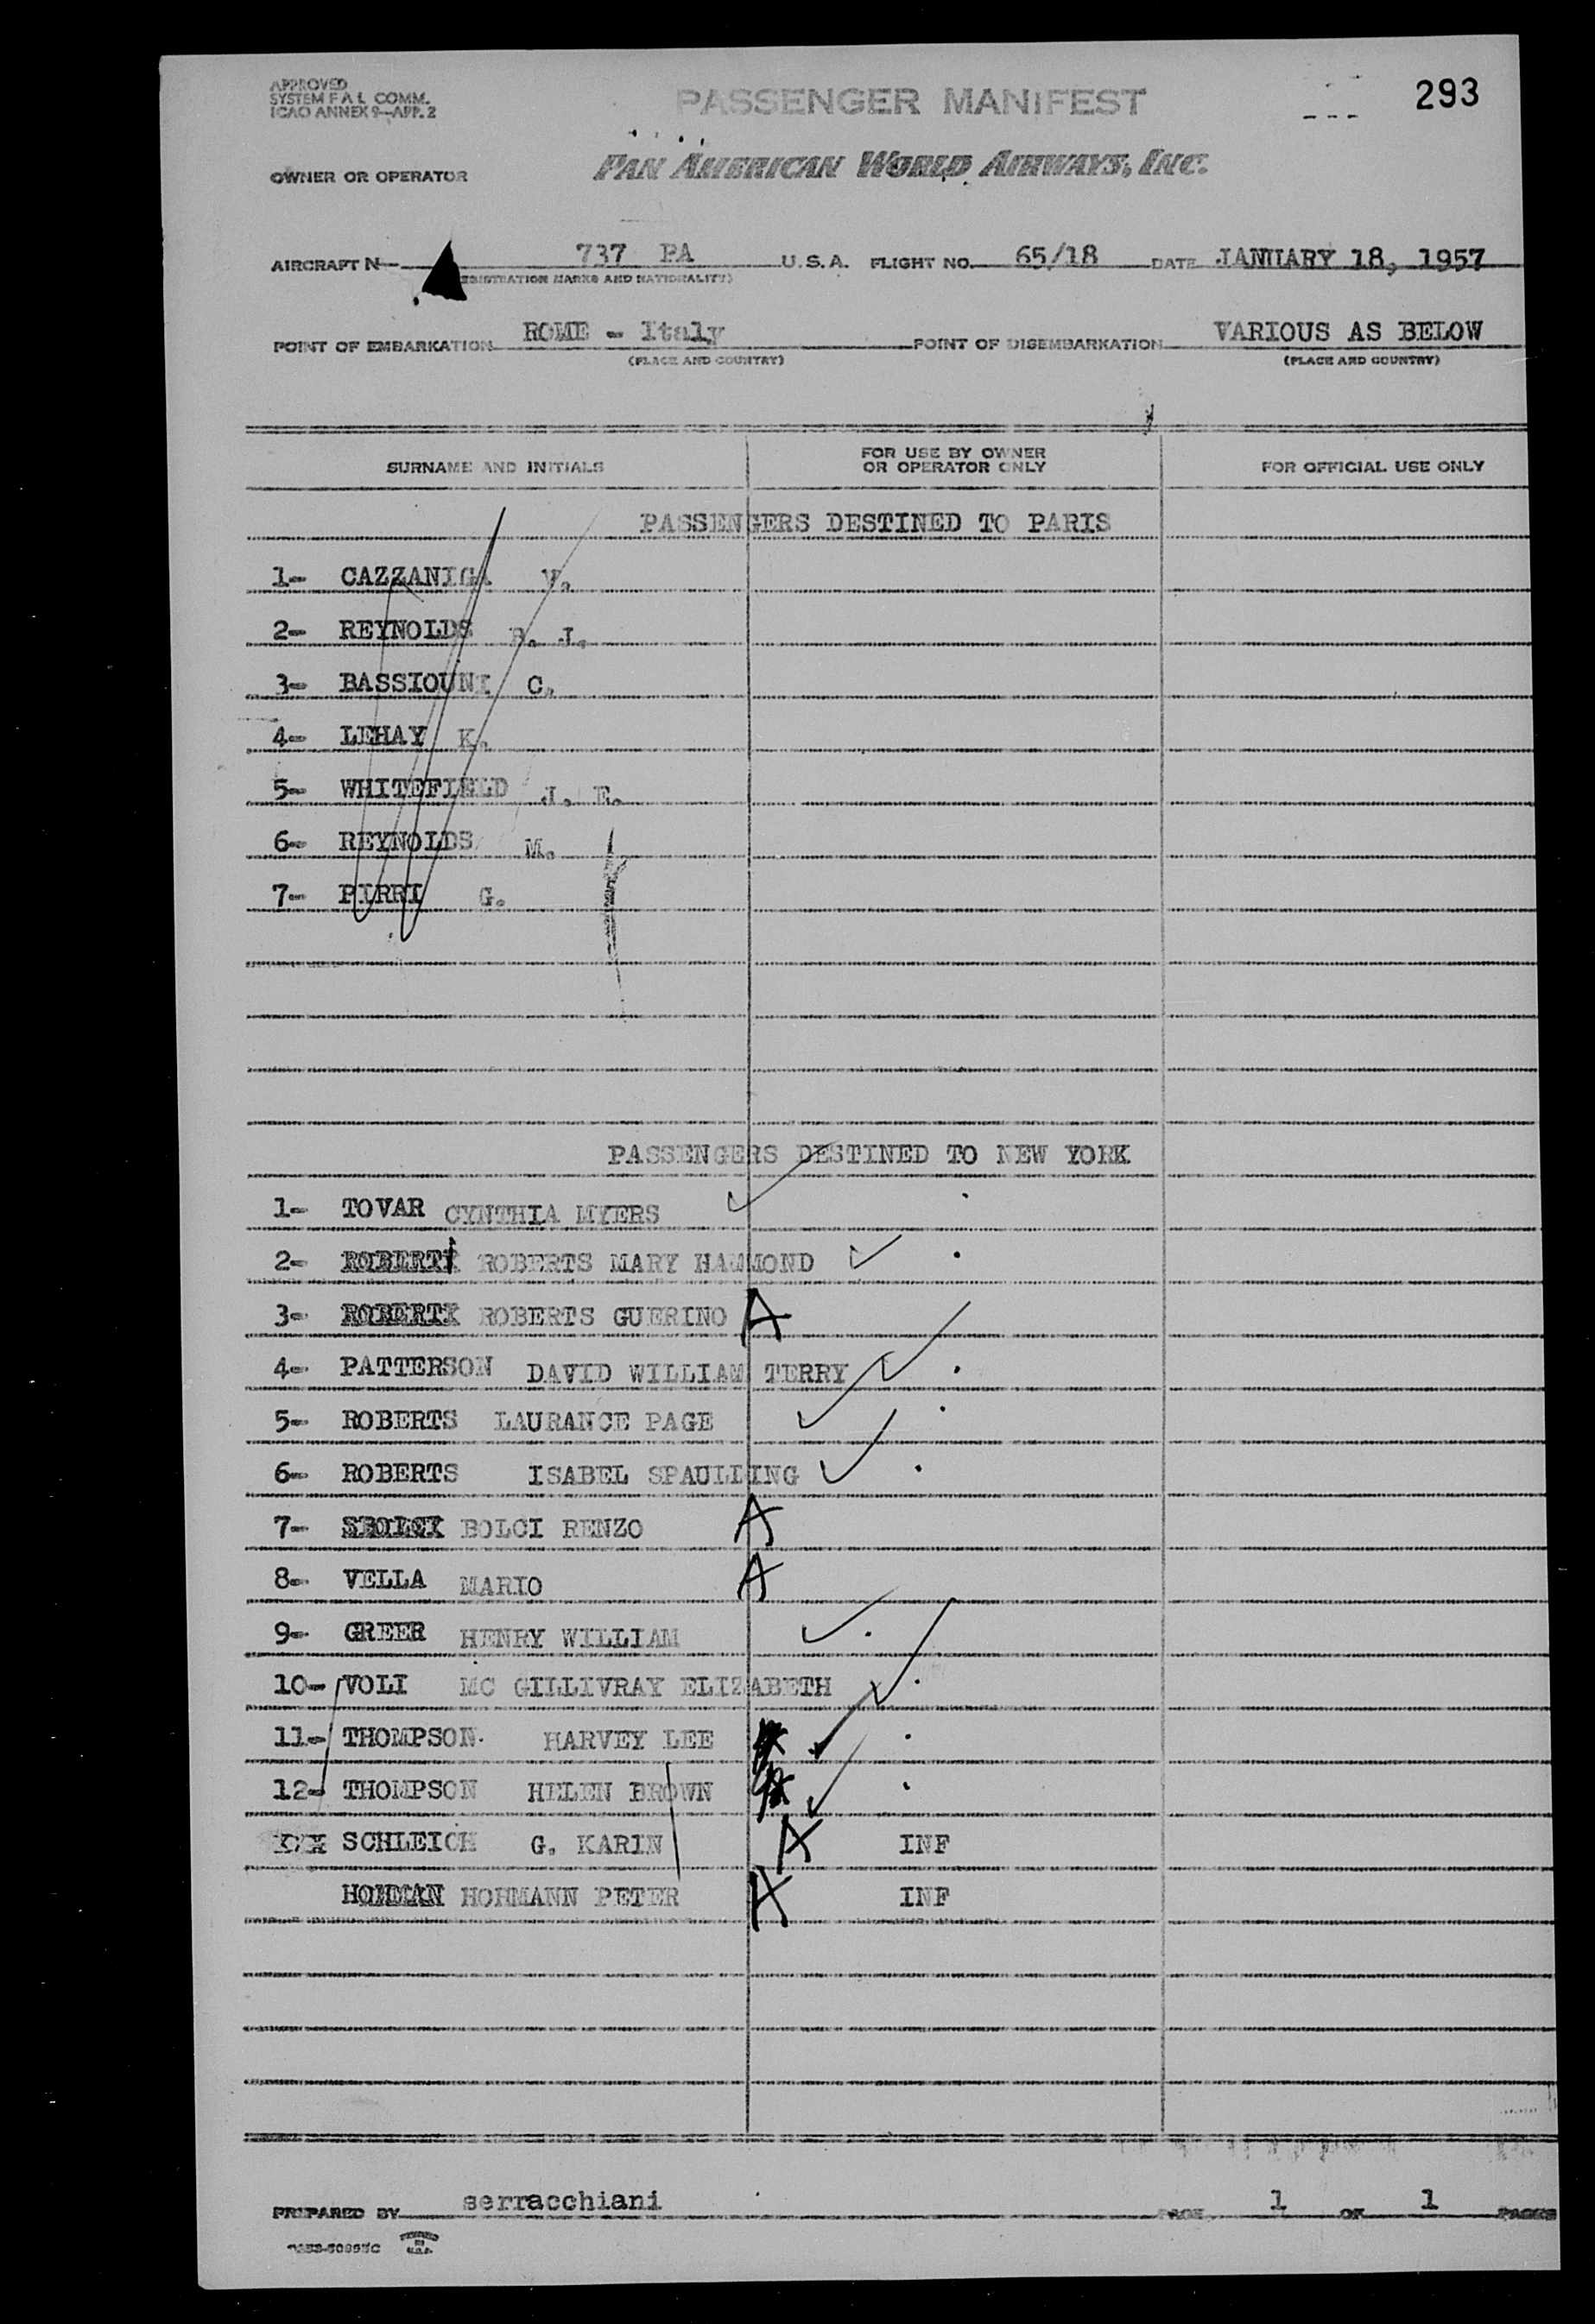 APPROVED
SYSTEM F A L COMM.
ICAO ANNEX 9—APP. 2
PASSENGER MANIFEST
293
OWNER OR OPERATOR
PAN AMERICAN WORLD AIRWAYS, INC.
AIRCRAFT N 737 PA U.S.A. FLIGHT NO. 65/18 DATE JANUARY 18, 1957
(REGISTRATION MARKS AND NATIONALITY)
POINT OF EMBARKATION ROME - Italy POINT OF DISEMBARKATION VARIOUS AS BELOW
(PLACE AND COUNTRY) (PLACE AND COUNTRY)
SURNAME AND INITIALS FOR USE BY OWNER OR OPERATOR ONLY FOR OFFICIAL USE ONLY
PASSENGERS DESTINED TO PARIS
1- CAZZANIGA V.
2- REYNOLDS J.
3- BASSIOUNI C.
4- LEHAY K.
5- WHITEFIELD J. E.
6- REYNOLDS M.
7- PIRRI G.
PASSENGERS DESTINED TO NEW YORK
1- TOVAR CYNTHIA MYERS
2- ROBERTS MARY HAMMOND
3- ROBERTS GUERINO A
4- PATTERSON DAVID WILLIAM TERRY
5- ROBERTS LAURANCE PAGE
6- ROBERTS ISABEL SPAULDING
7- BOLCI RENZO A
8- VELLA MARIO A
9- GREER HENRY WILLIAM
10- VOLI MC GILLIVRAY ELIZABETH
11- THOMPSON HARVEY LEE
12- THOMPSON HELEN BROWN
SCHLEICH G. KARIN A INF
HOHMAN HOHMANN PETER A INF
PREPARED BY serracchiani PAGE 1 OF 1 PAGES